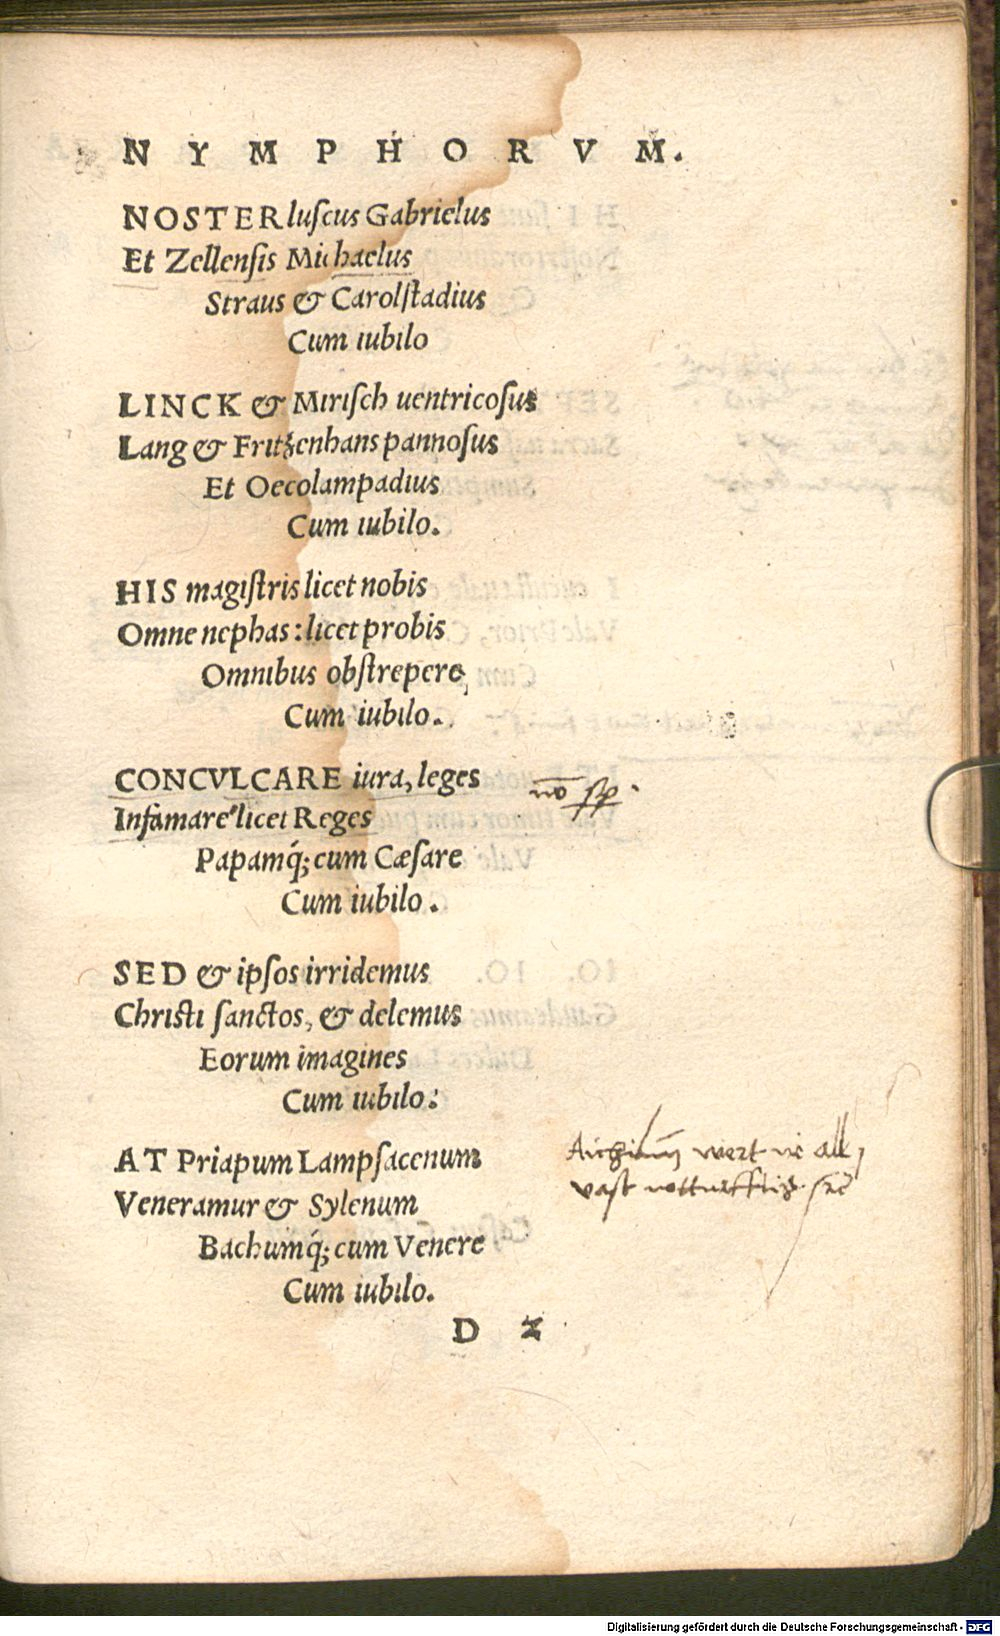 NYMPHORVM.
NOSTER luſcus Gabrielus
Et Zellenſis Michaelus
Straus & Carolſtadius
Cum iubilo
LINCK & Miriſch uentricoſus
Lang & Fritzenhans pannoſus
Et Oecolampadius
Cum iubilo.
HIS magiſtris licet nobis
Omne nephas: licet probis
Omnibus obſtrepere,
Cum iubilo.
CONCVLCARE iura, leges
Infamare licet Reges
Papamq́; cum Cæſare
Cum iubilo.
SED & ipſos irridemus
Chriſti ſanctos, & delemus
Eorum imagines
Cum iubilo:
AT Priapum Lampſacenum
Veneramur & Sylenum
Bachumq́; cum Venere
Cum iubilo.
D 2
wert
vast
Digitalisierung gefördert durch die Deutsche Forschungsgemeinschaft - DFG